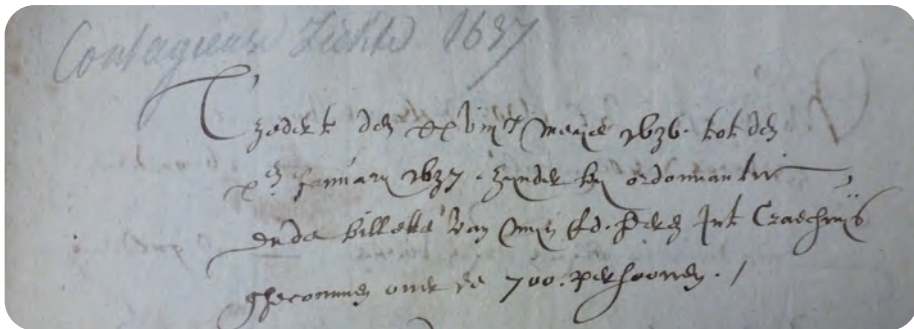 Contagieuse Ziekte 1637
Tzedert den xxviij.e meije 1636. tot den
x.en Januarij 1637. zijnder bij ordonnantie
ende billette van mijn Ed. heeren Int Craechuijs
ghecommen over de 700. persoonen. /